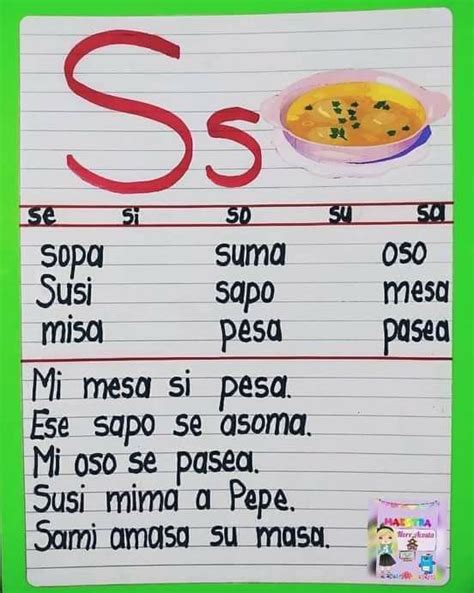 S s
se si so su sa
sopa suma oso
Susi sapo mesa
misa pesa pasea
Mi mesa si pesa.
Ese sapo se asoma.
Mi oso se pasea.
Susi mima a Pepe.
Sami amasa su masa.
MAESTRA